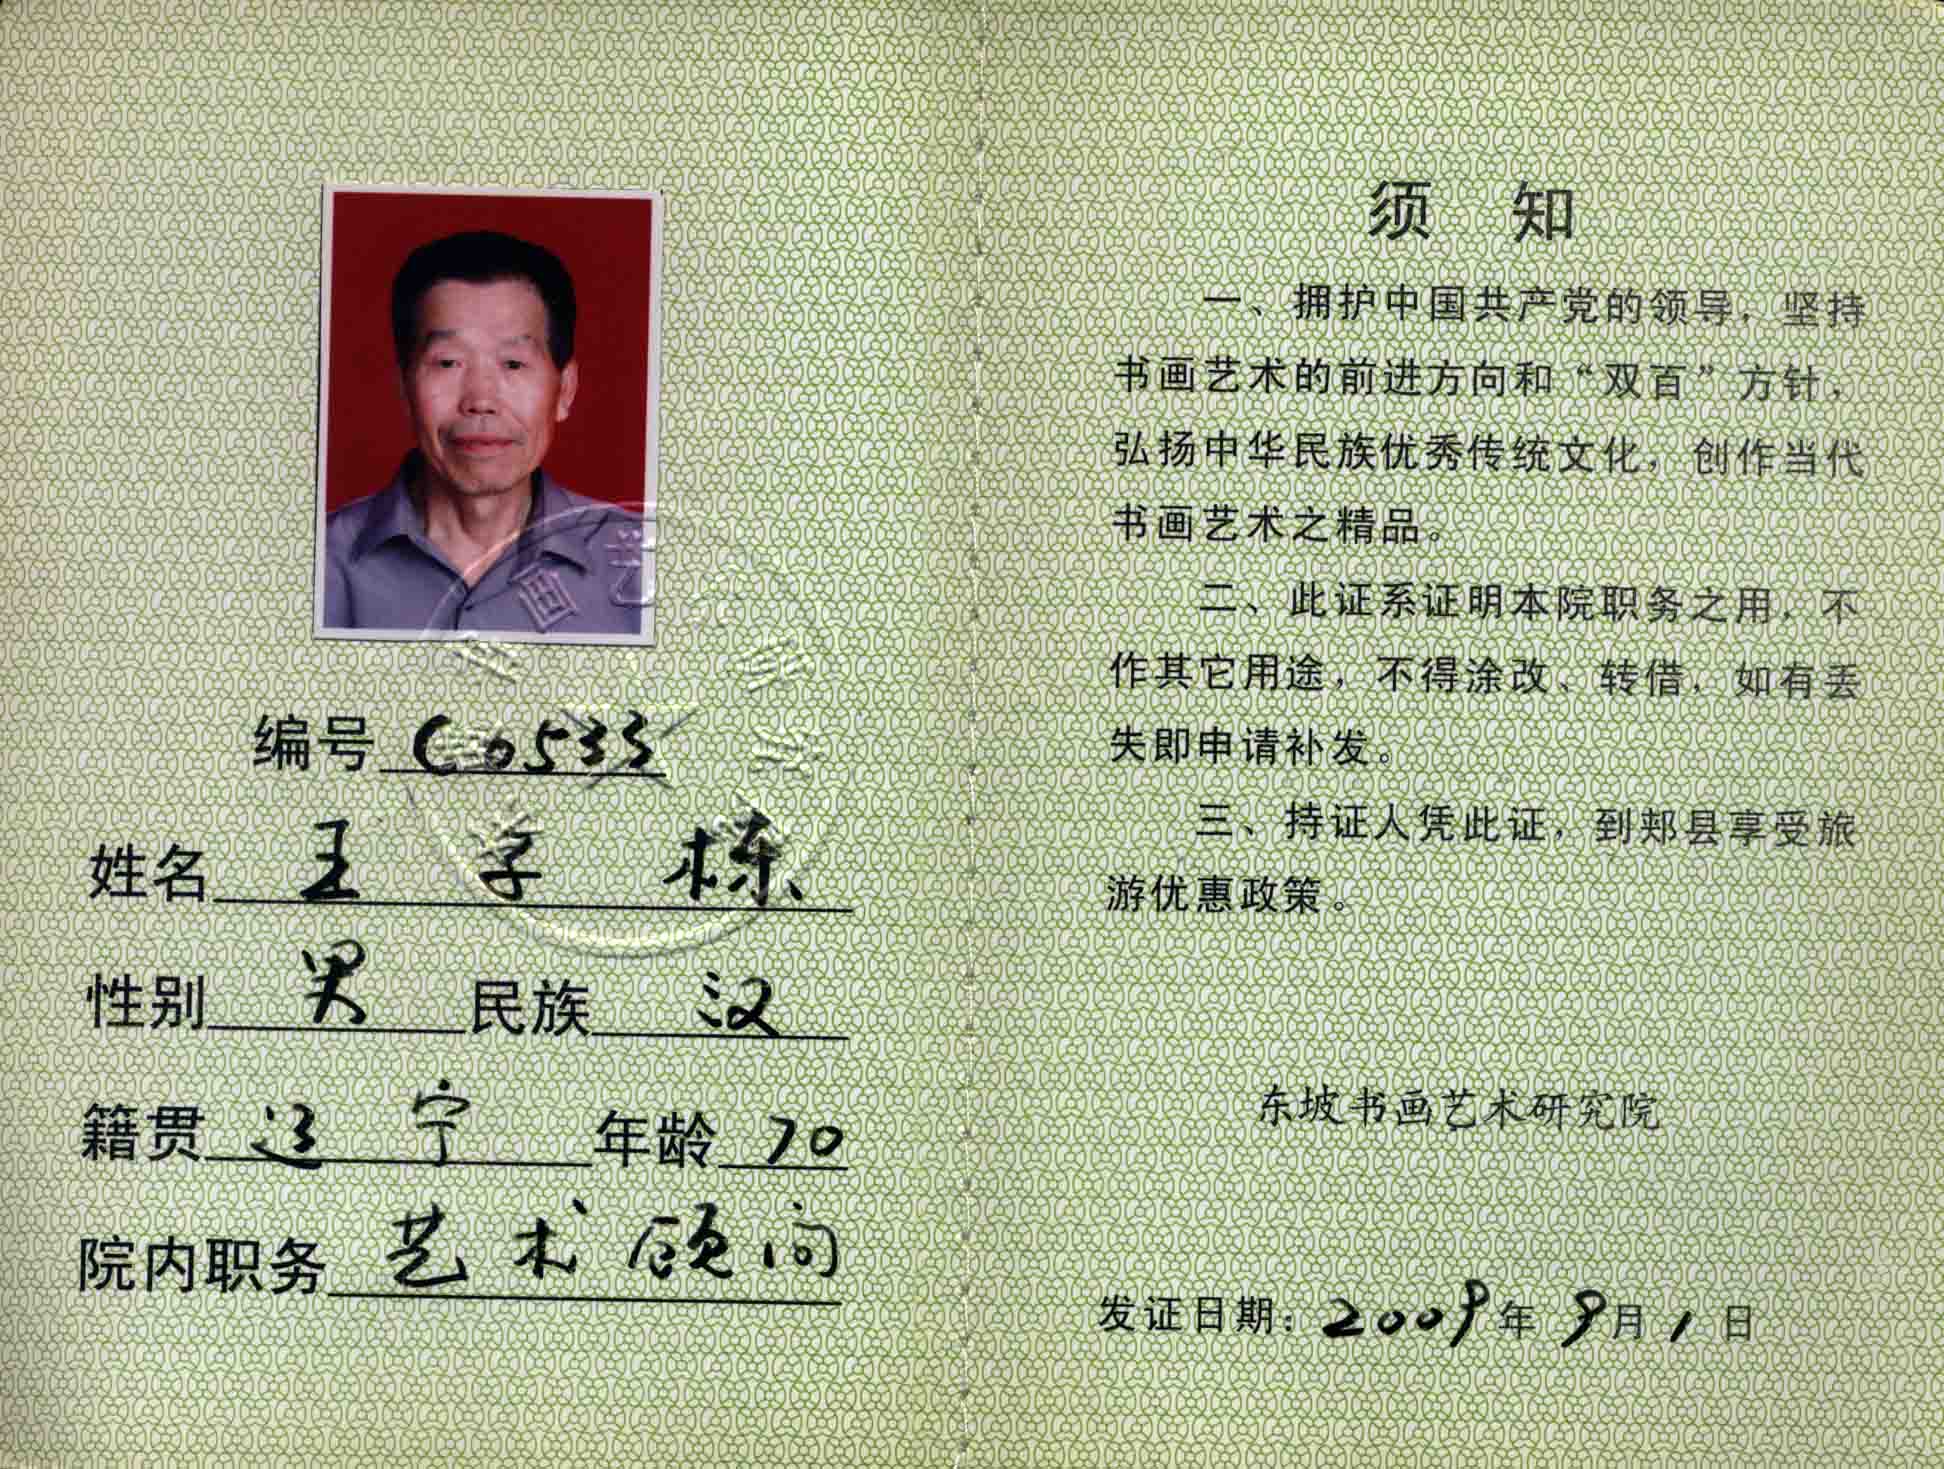 编号 C0533
姓名 王学栋
性别 男 民族 汉
籍贯 辽宁 年龄 70
院内职务 艺术顾问
须 知
一、拥护中国共产党的领导，坚持
书画艺术的前进方向和“双百”方针，
弘扬中华民族优秀传统文化，创作当代
书画艺术之精品。
二、此证系证明本院职务之用，不
作其它用途，不得涂改、转借，如有丢
失即申请补发。
三、持证人凭此证，到郏县享受旅
游优惠政策。
东坡书画艺术研究院
发证日期：2009年9月1日